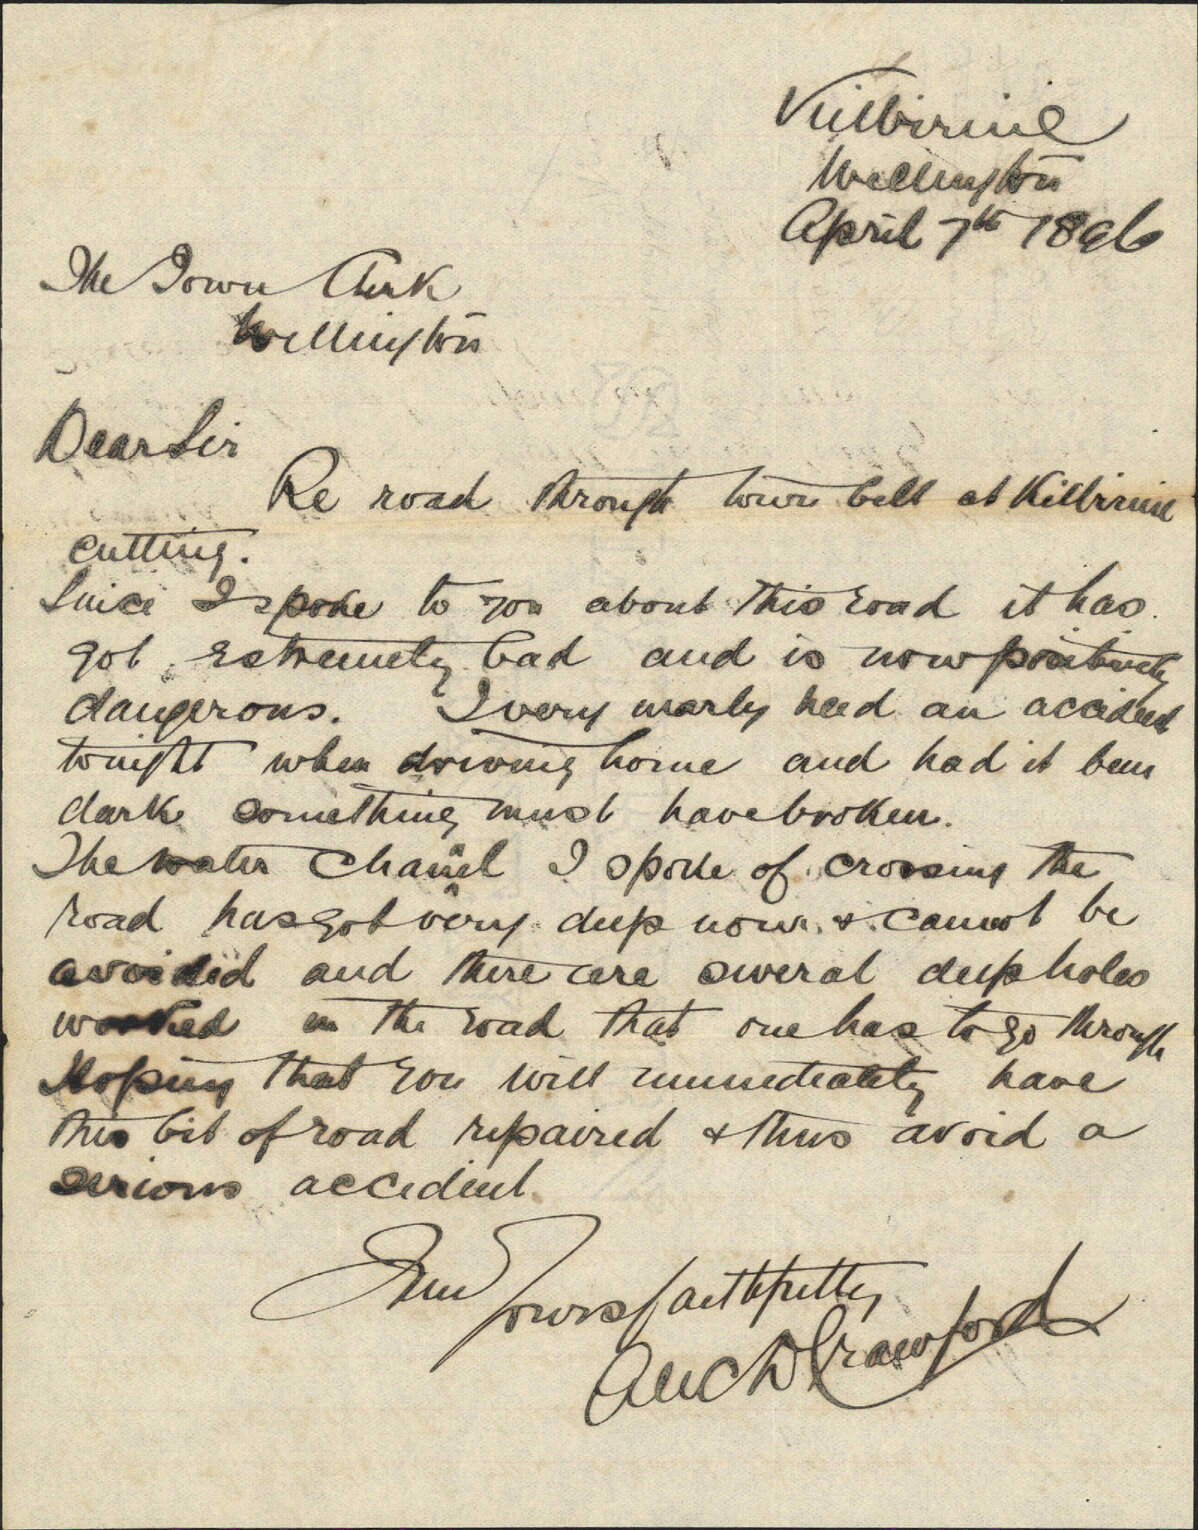 Kilbirnie
Wellington
April 7th 1896
The Town Clerk
Wellington
Dear Sir
Re road through town belt at Kilbirnie
cutting.
Since I spoke to you about this road it has
got extremely bad and is now positively
dangerous. I very nearly had an accident
tonight when driving home and had it been
dark something must have broken.
The water channel I spoke of crossing the
road has got very deep now & cannot be
avoided and there are several deep holes
worked in the road that one has to go through
Hoping that you will immediately have
this bit of road repaired & thus avoid a
serious accident.
I am
Yours faithfully
Crawford